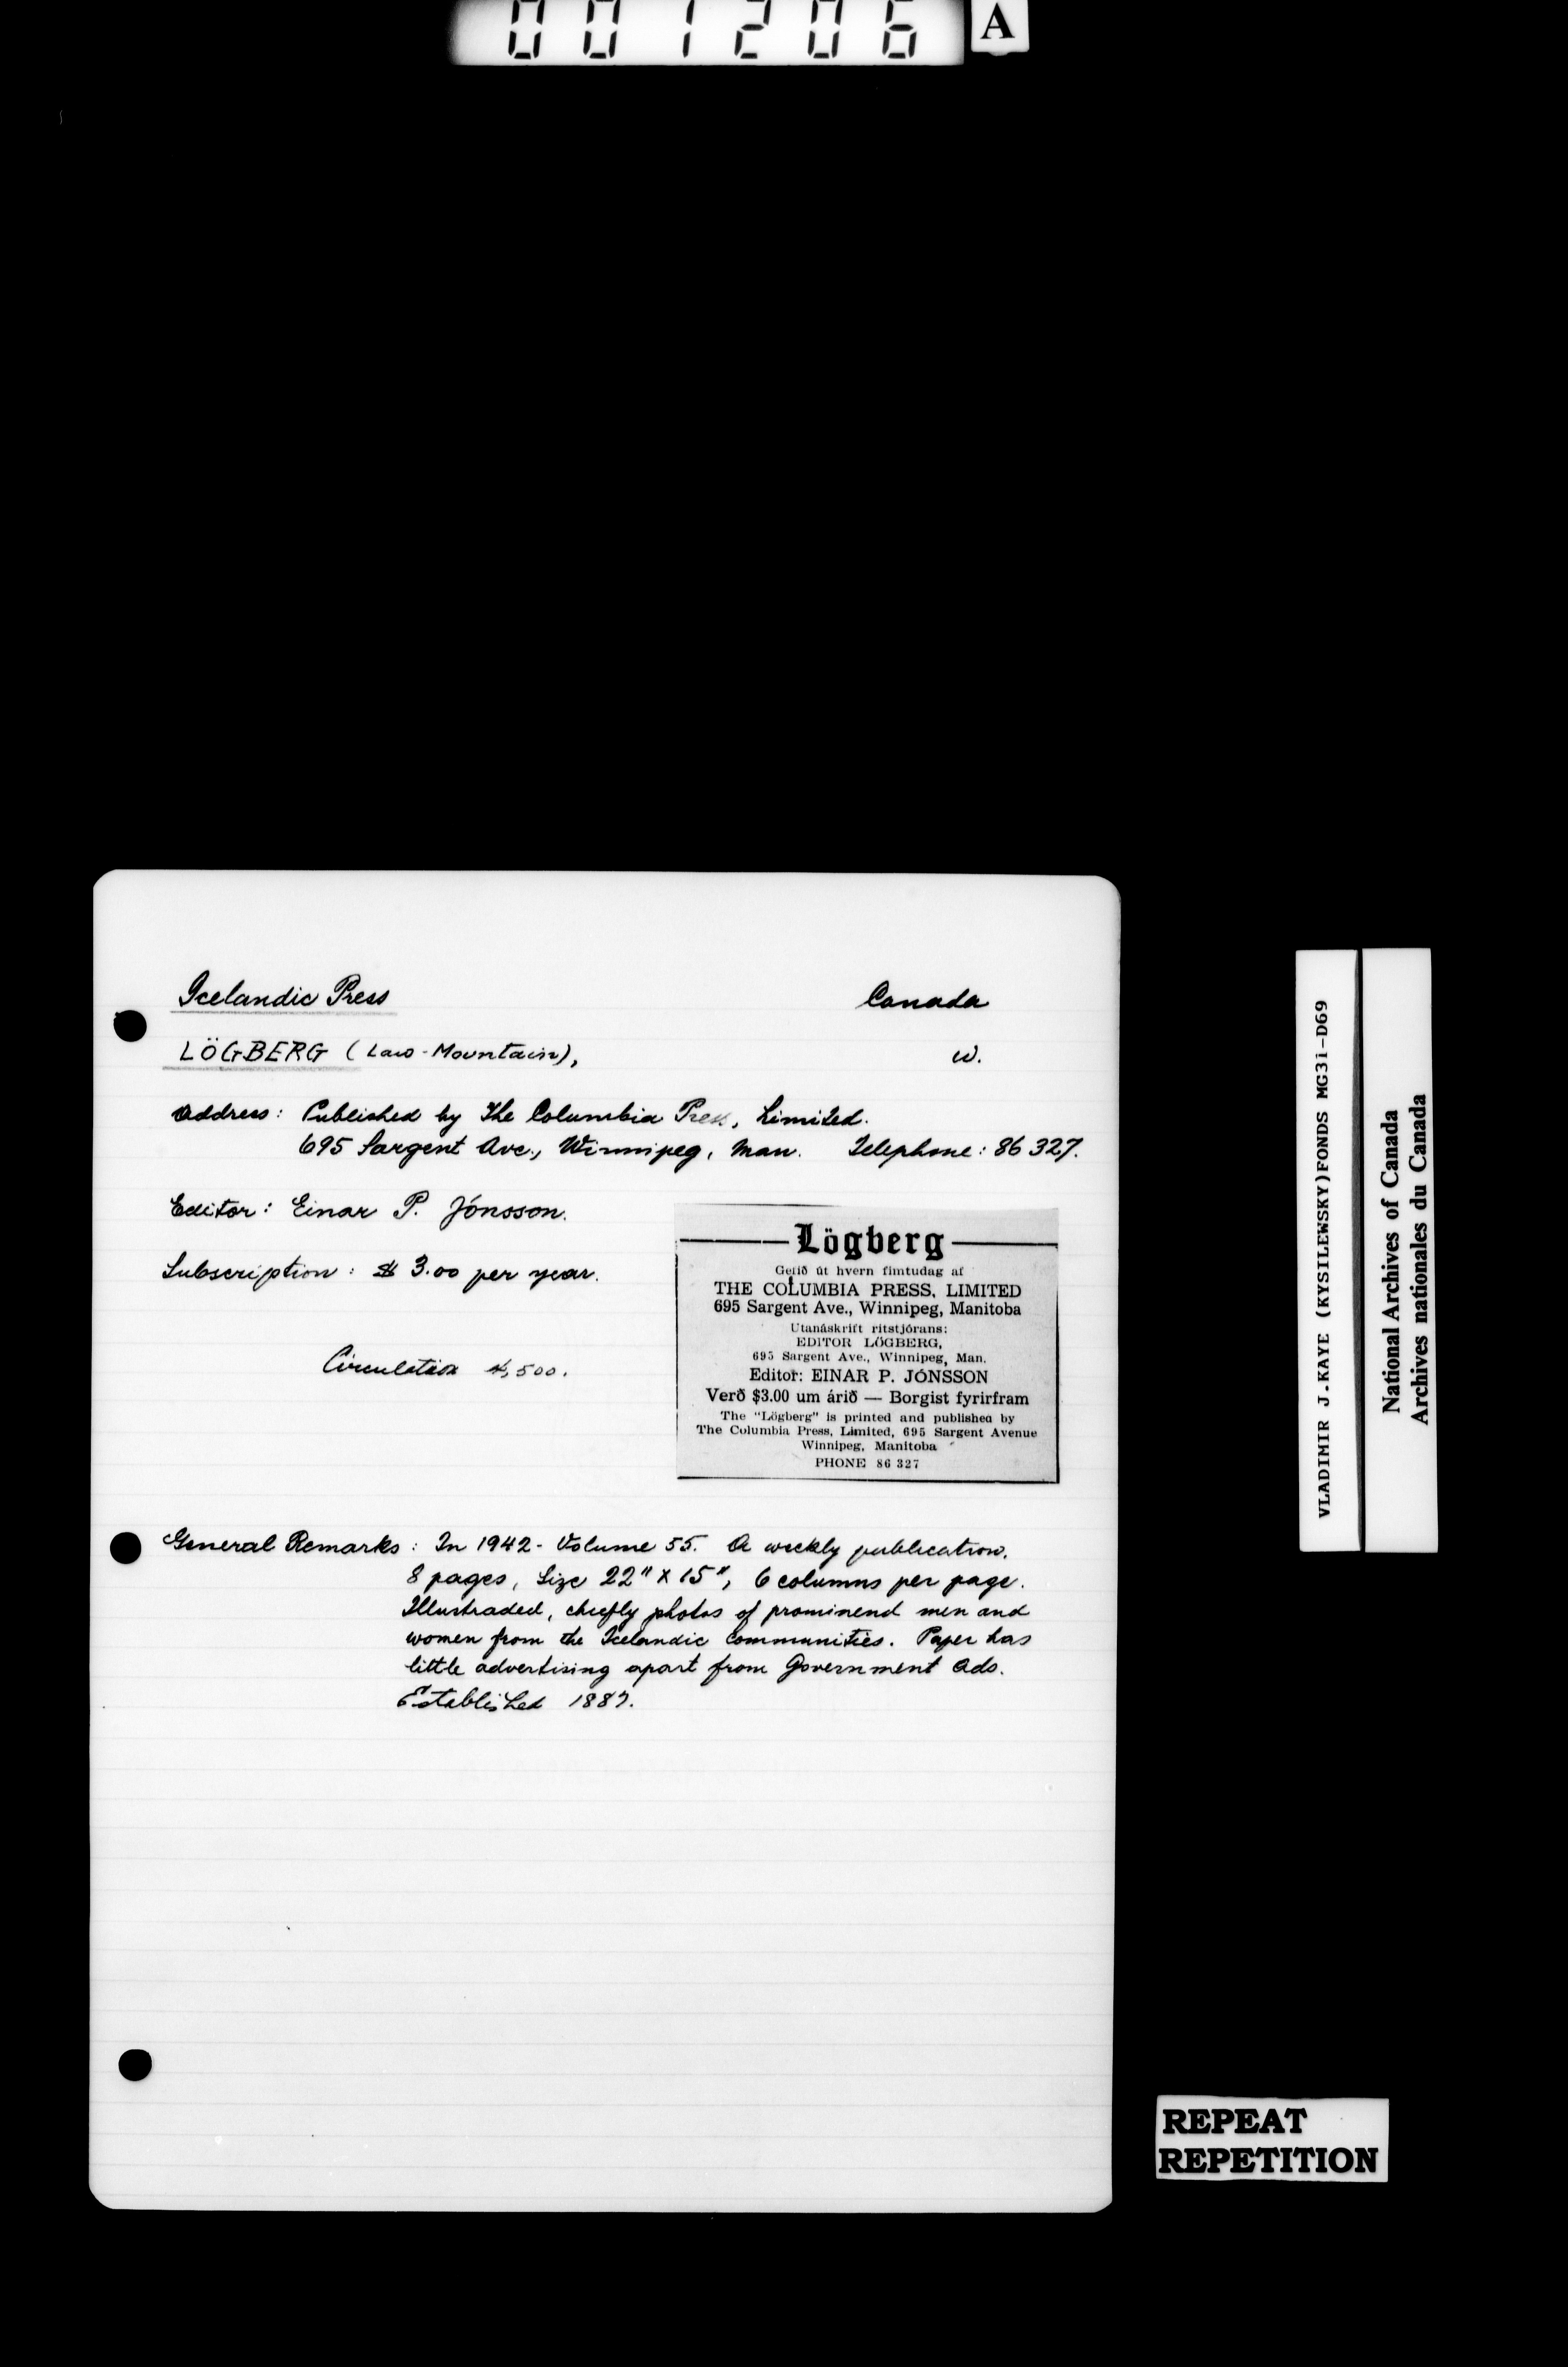 001206 A
Icelandic Press Canada
LÖGBERG (Law-Mountain), W.
Address: Published by The Columbia Press, Limited.
695 Sargent Ave., Winnipeg, Man. Telephone: 86 327.
Editor: Einar P. Jónsson.
Subscription: $ 3.00 per year.
Circulation 4,500.
Lögberg
Gefið út hvern fimtudag af
THE COLUMBIA PRESS, LIMITED
695 Sargent Ave., Winnipeg, Manitoba
Utanáskrift ritstjórans:
EDITOR LÖGBERG,
695 Sargent Ave., Winnipeg, Man.
Editor: EINAR P. JÓNSSON
Verð $3.00 um árið — Borgist fyrirfram
The "Lögberg" is printed and published by
The Columbia Press, Limited, 695 Sargent Avenue
Winnipeg, Manitoba
PHONE 86 327
General Remarks: In 1942 - Volume 55. A weekly publication.
8 pages, Size 22" x 15", 6 columns per page.
Illustraded, chiefly photos of prominend men and
women from the Icelandic Communities. Paper has
little advertising apart from Government Ads.
Established 1887.
VLADIMIR J.KAYE (KYSILEWSKY)FONDS MG31-D69
National Archives of Canada
Archives nationales du Canada
REPEAT
REPETITION